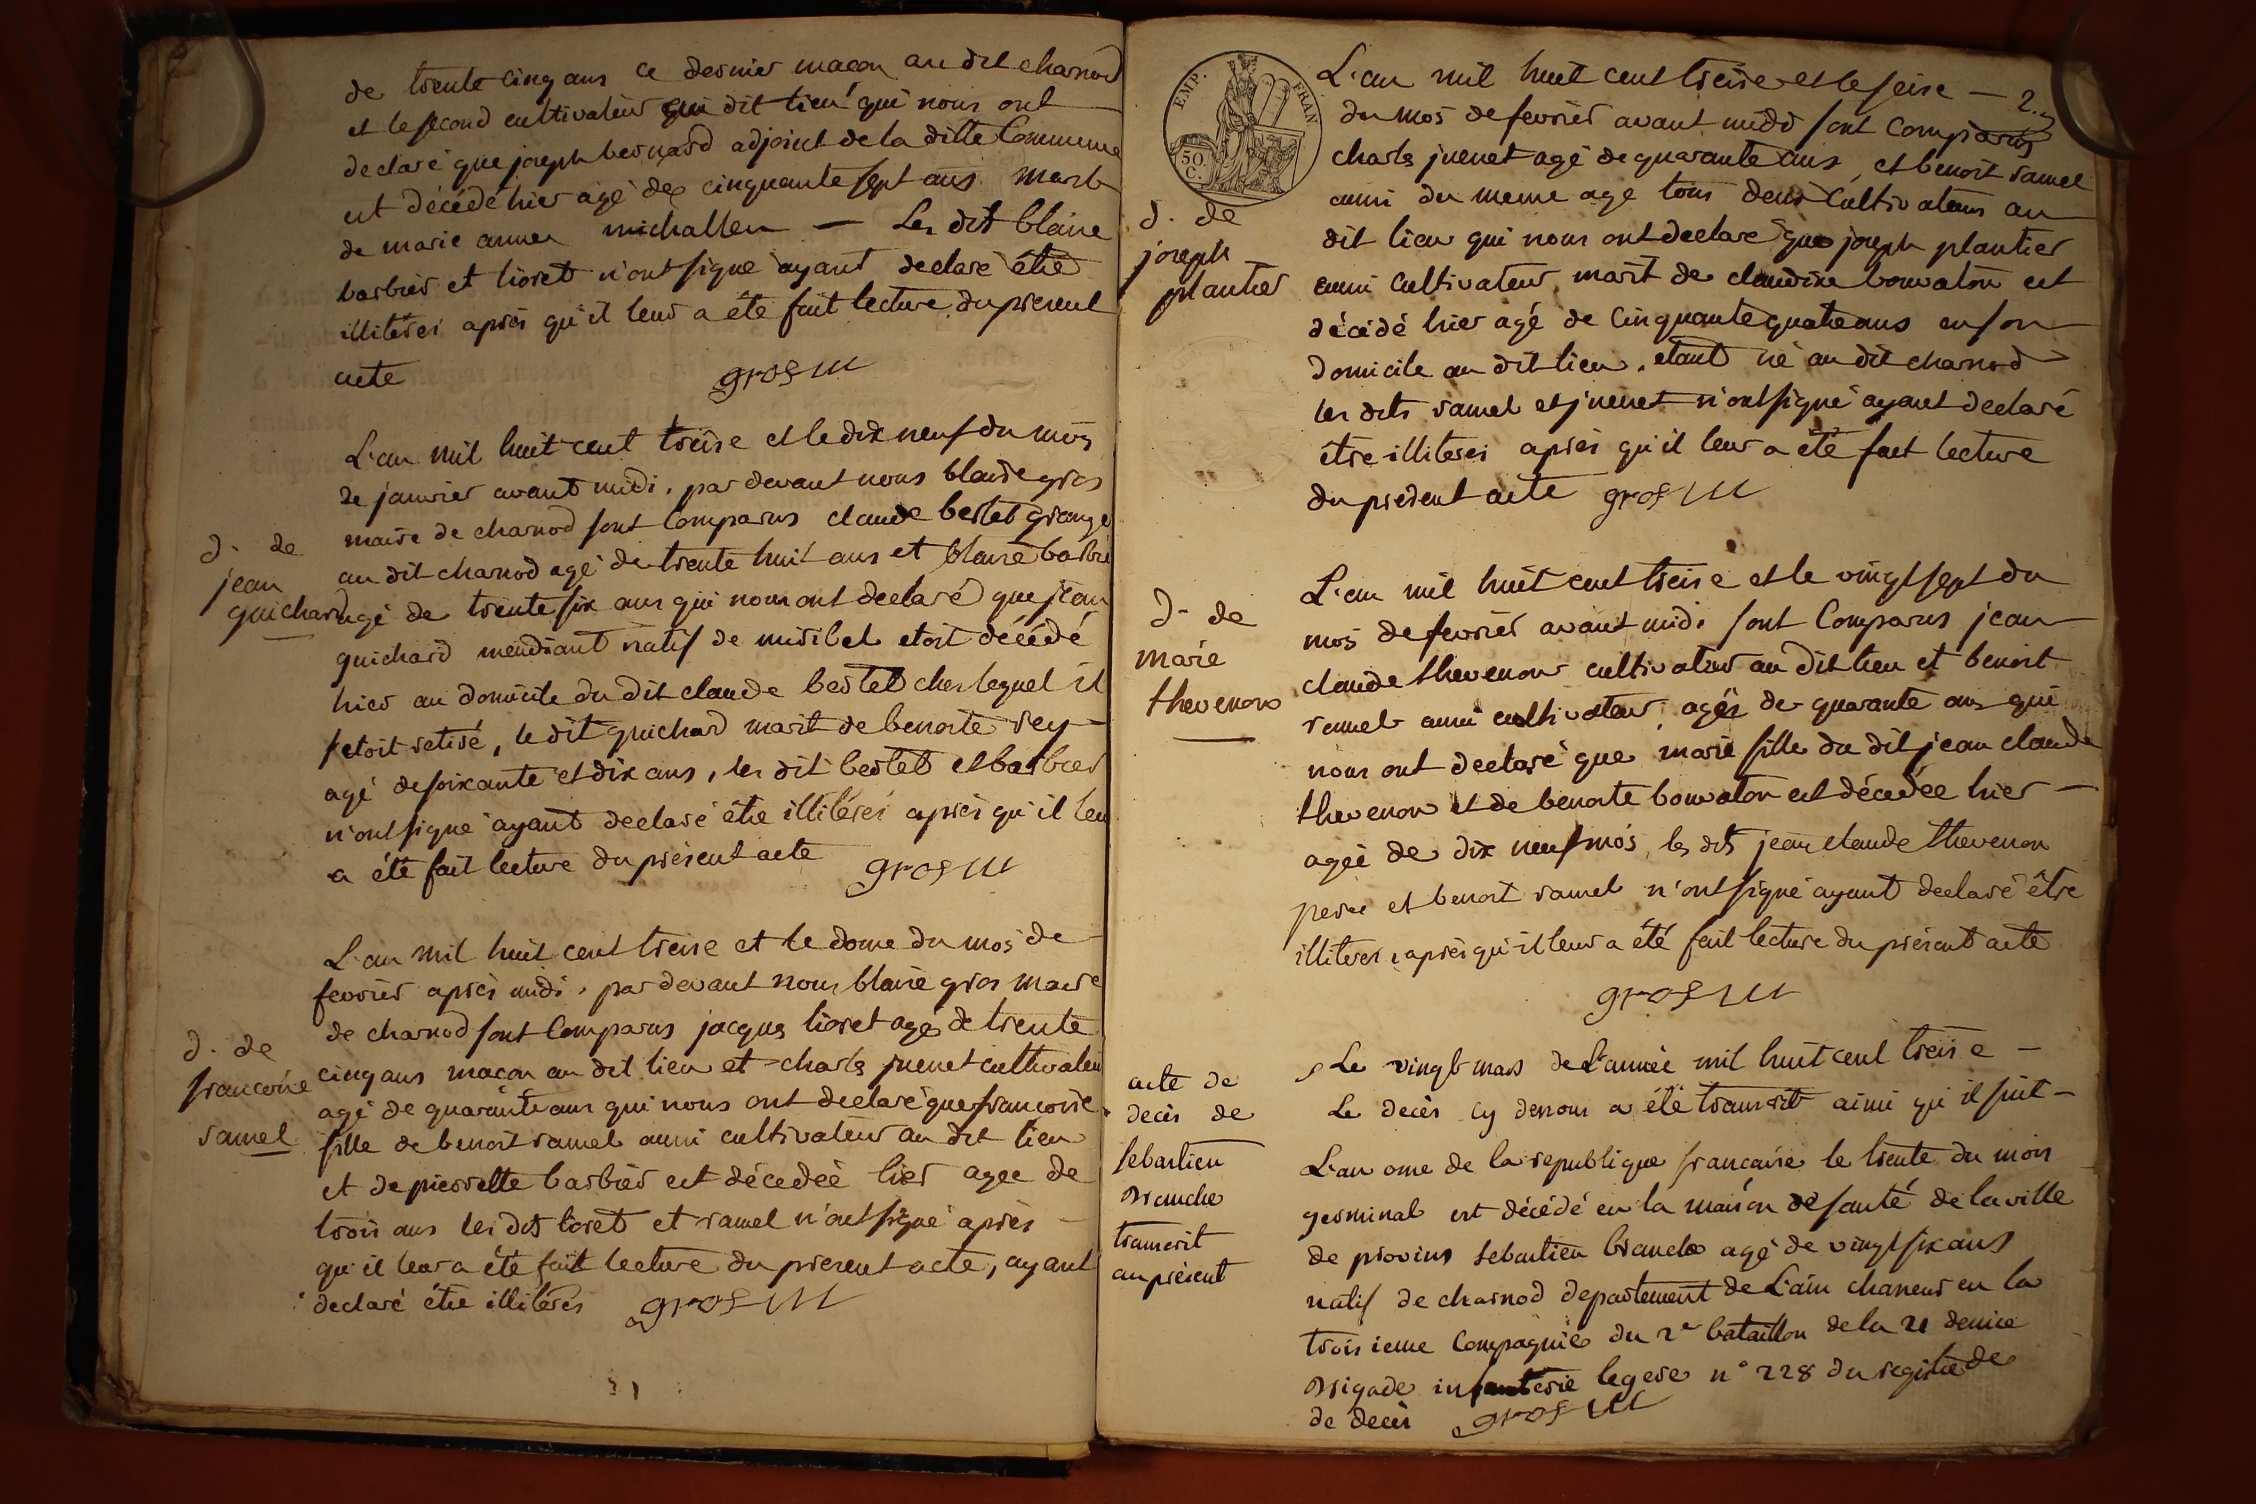 de trente cinq ans ce dernier macon au dit charnod
et le second cultivateur au dit lieu qui nous ont
declaré que joseph bernard adjoint de la ditte Commune
est décédé hier agé de cinquante sept ans marit
de marie anne michallen — Les dit blaise
barbier et lioret n'ont signé ayant declaré être
illiterés après qu'il leur a été fait lecture du present
acte grosm
L'an mil huit cent treise et le dix neuf du mois
de janvier avant midi, par devant nous blaise gros
maire de charnod sont Comparus claude bertet grange
au dit charnod agé de trente huit ans et blaise barbier
d. de
jean
guichard
agé de trente six ans qui nous ont declaré que jean
guichard mendiant natif de miribel etoit décédé
hier au domicile du dit claude bertet ches lequel il
s'etoit retiré, le dit guichard marit de benoite rey
agé de soixante et dix ans, les dit bertet et barbier
n'ont signé ayant declaré être illiterés après qu'il leur
a été fait lecture du présent acte grosm
L'an mil huit cent treise et le dome du mois de
fevrier après midi, par devant nous blaise gros maire
de charnod sont Comparus jacques lioret agé de trente
d. de
francoise
ramel
cinq ans macon au dit lieu et charle juenet cultivateur
agé de quarante ans qui nous ont declaré que francoise
fille de benoit ramel aussi cultivateur au dit lieu
et de pierrette barbier est décedée hier agee de
trois ans les dits lioret et ramel n'ont signé après
qu'il leur a été fait lecture du present acte, ayant
declaré être illiterés grosm
EMP. FRAN.
50. C.
2.
L'an mil huit cent treise et le seise —
du mois de fevrier avant midi sont Comparus
charle juenet agé de quarante ans, et benoit ramel
aussi du meme age tous deux Cultivateurs au
d. de
joseph
plantier
dit lieu qui nous ont declaré que joseph plantier
aussi cultivateur, marit de claudine bouvaton est
décédé hier agé de Cinquante quatre ans en son
domicile au dit lieu, etant né au dit charnod
les dits ramel et juenet n'ont signé ayant declaré
être illiterés après qu'il leur a été fait lecture
du present acte grosm
L'an mil huit cent treise et le vingt sept du
d. de
marie
thevenon
mois de fevrier avant midi sont Comparus jean
claude thevenon cultivateur au dit lieu et benoit
ramel aussi cultivateur, agés de quarante ans qui
nous ont declaré que marie fille du dit jean claude
thevenon et de benoite bouvaton est décedée hier —
agée de dix neuf mois, les dits jean claude thevenon
pere et benoit ramel n'ont signé ayant declaré être
illiterés, après qu'il leur a été fait lecture du présent acte
grosm
acte de
decès de
sebastien
branche
transcrit
au présent
Le vingt mars de L'année mil huit cent treise —
Le decès cy dessous a été transcrit ainsi qu'il suit —
L'an onse de la republique francaise le trente du mois
germinal est décédé en la maison de santé de la ville
de provins sebastien branche agé de vingt six ans
natif de charnod departement de L'ain chasseur en la
troisieme Compagnie du 2e bataillon de la 21 demie
Brigade infanterie legere n° 228 du registre de
de decès grosm